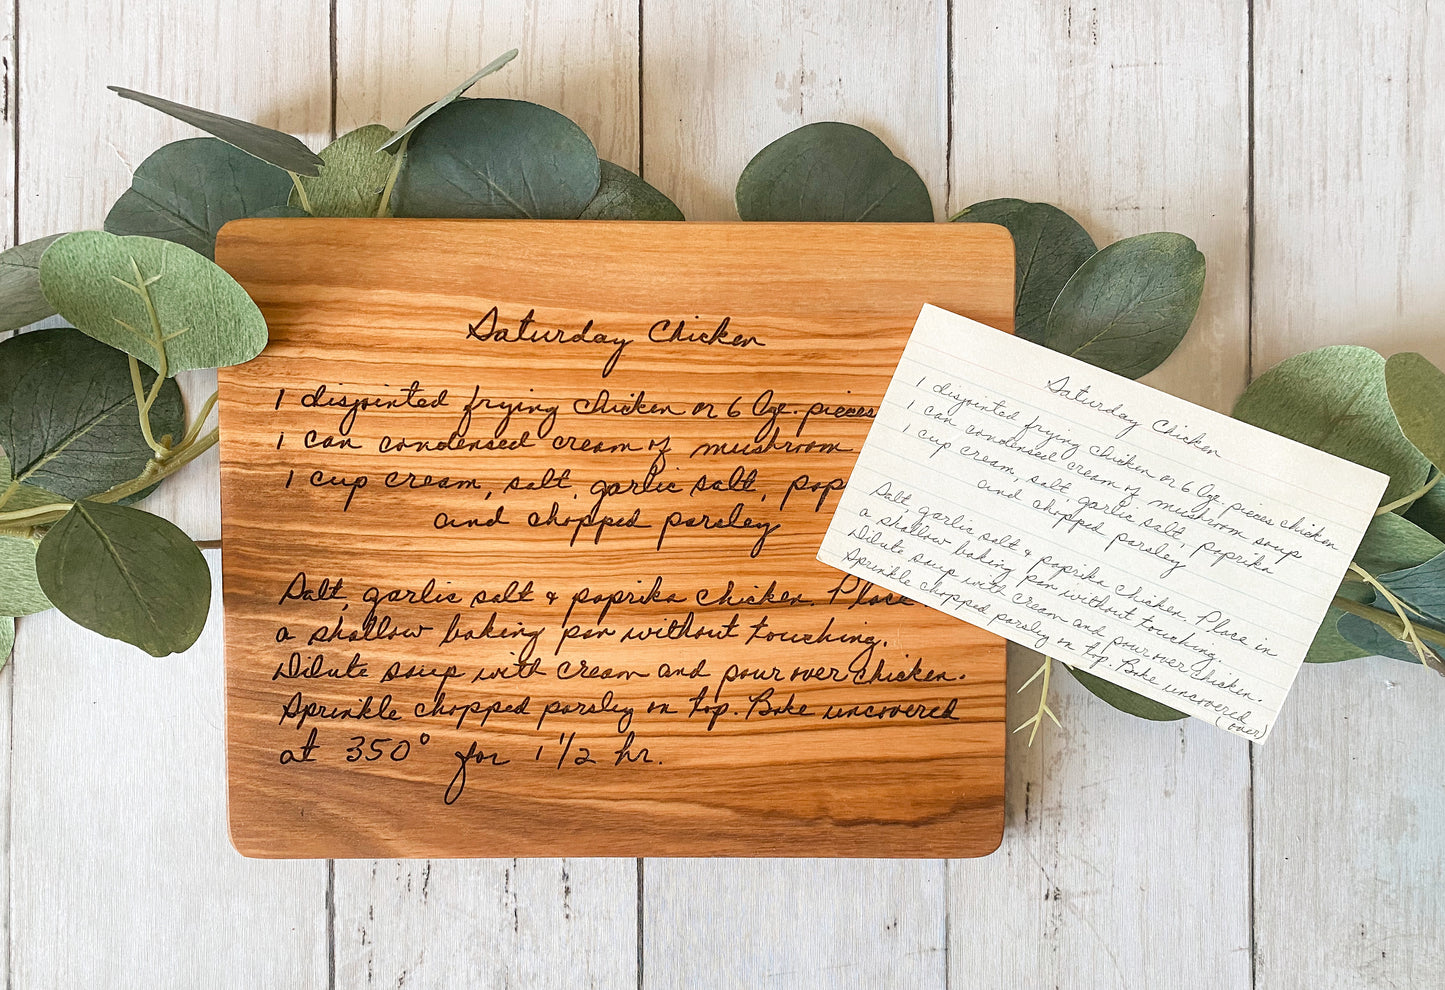 Saturday Chicken
1 disjointed frying chicken or 6 lge. pieces
1 can condensed cream of mushroom
1 cup cream, salt, garlic salt, pap
and chopped parsley
Salt, garlic salt & paprika chicken. Place
a shallow baking pan without touching.
Dilute soup with cream and pour over chicken.
Sprinkle chopped parsley on top. Bake uncovered
at 350° for 1 1/2 hr.
Saturday Chicken
1 disjointed frying chicken or 6 lge. pieces chicken
1 can condensed cream of mushroom soup
1 cup cream, salt, garlic salt, paprika
and chopped parsley
Salt, garlic salt & paprika chicken. Place in
a shallow baking pan without touching.
Dilute soup with cream and pour over chicken.
Sprinkle chopped parsley on top. Bake uncovered
(over)